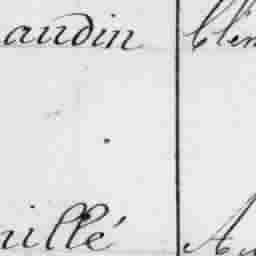 audin Clém
illé A